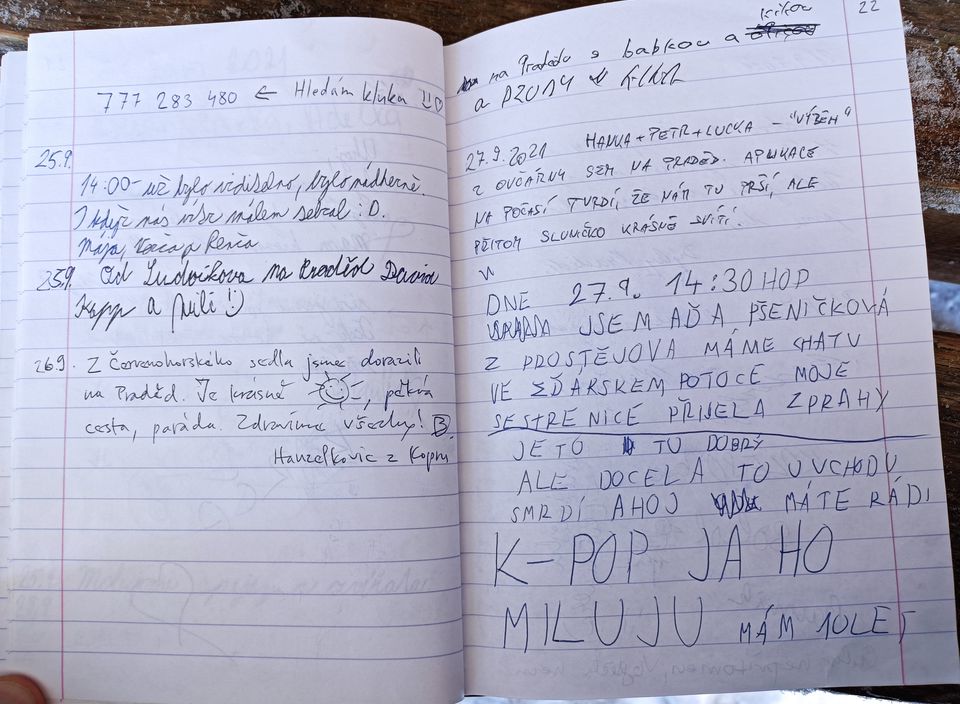 777 283 480 ← Hledám kluka !! ♡
25.9.
14:00 - už bylo vidiselno, bylo nádherně.
I když nás vítr málem sebral :D.
Mája, Verča a Renča
25.9. Od Ludvíkova na Praděd David
Kopp a :)
26.9. Z Červenohorského sedla jsme dorazili
na Praděd. Je krásně, pěkná
cesta, paráda. Zdravíme všechny!
Hanzelkovic z Kopru
22
na Pradědu s babkou a kikou
a
27.9.2021 HANKA + PETR + LUCKA - "VÝBĚH"
Z OVČÁRNY SEM NA PRADĚD. APLIKACE
NA POČASÍ TVRDÍ, ŽE NÁM TU PRŠÍ, ALE
PŘITOM SLUNÍČKO KRÁSNĚ SVÍTÍ!
DNE 27.9. 14:30 HOD
JSEM AĎA PŠENIČKOVÁ
Z PROSTĚJOVA MÁME CHATU
VE ŽĎÁRSKEM POTOCE MOJE
SESTRENICE PŘIJELA ZPRAHY
JE TO TU DOBRÝ
ALE DOCELA TO U VCHODU
SMRDÍ AHOJ MÁTE RÁDI
K-POP JA HO
MILUJU MÁM 10LET